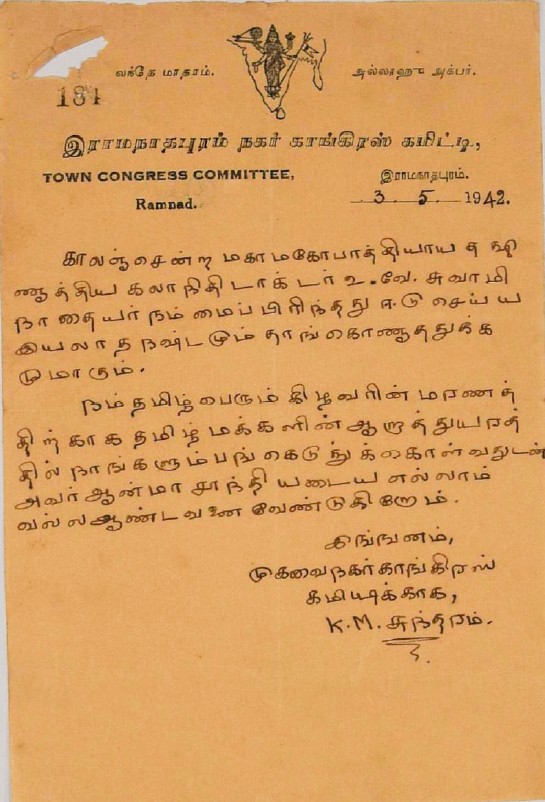 வந்தே மாதரம். அல்லாஹு அக்பர்.
134
இராமநாதபுரம் நகர் காங்கிரஸ் கமிட்டி,
TOWN CONGRESS COMMITTEE, இராமநாதபுரம்.
Ramnad. 3-5-1942.
காலஞ்சென்ற மகாமகோபாத்தியாய தக்ஷி
ணாத்திய கலாநிதி டாக்டர் உ.வே. சுவாமி
நாதையர் நம்மைப்பிரிந்தது ஈடு செய்ய
இயலாத நஷ்டமும் தாங்கொணாத்துக்க
முமாகும்.
நம் தமிழ்பெரும் கிழவரின் மரணத்
திற்காக தமிழ் மக்களின் ஆறாத்துயரத்
தில் நாங்களும் பங்கெடுத்துக்கொள்வதுடன்
அவர் ஆன்மா சாந்தியடைய எல்லாம்
வல்ல ஆண்டவனை வேண்டுகிறோம்.
இங்ஙனம்,
முகவை நகர் காங்கிரஸ்
கமிட்டிக்காக,
K.M. சுந்தரம்.